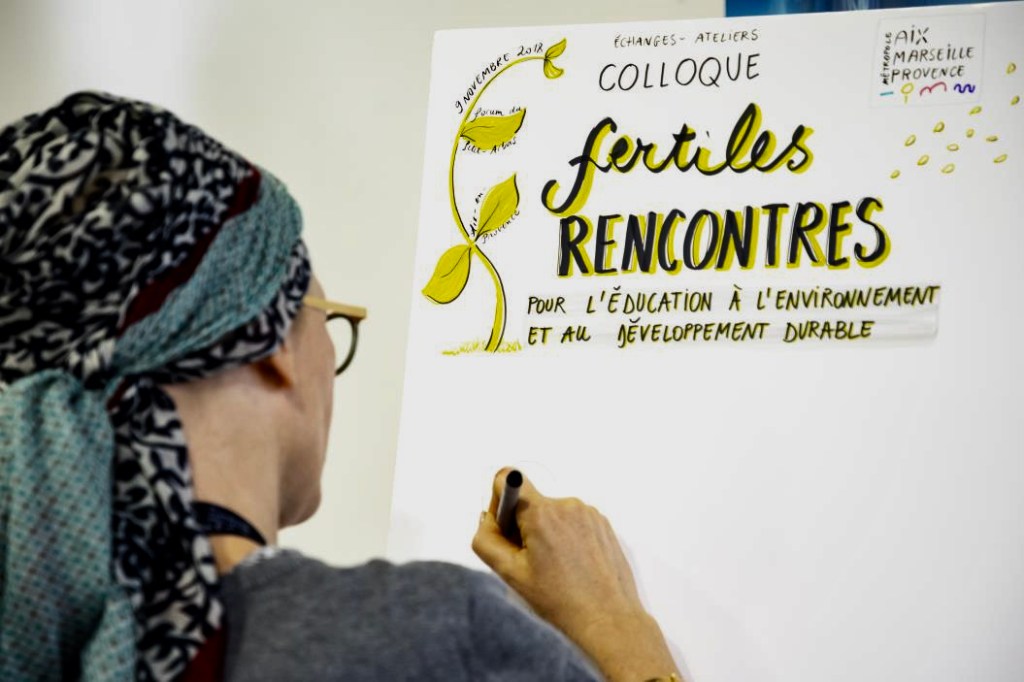 9 NOVEMBRE 2018
Forum du
Site-Arbois
Aix-en-
Provence
ÉCHANGES - ATELIERS
COLLOQUE
fertiles
RENCONTRES
POUR L'ÉDUCATION À L'ENVIRONNEMENT
ET AU DÉVELOPPEMENT DURABLE
MÉTROPOLE
AIX
MARSEILLE
PROVENCE